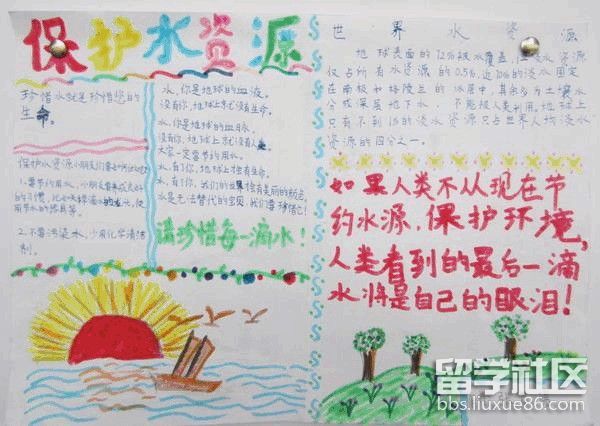 保护水资源
珍惜水就是珍惜您的
生命。
保护水资源小朋友们要如何做呢?
1.要节约用水,小朋友要养成良好
的习惯,比如
2.不要污染水,少用化学清洁
剂。
水,你是地球的血液。
没有你,地球上就没有生命。
水,你是地球的血脉。
没有你,地球上就没有
大家一定要节约用水。
水,有了你,地球上就有生命。
水,有了你,我们的世界
水是无法替代的宝贝,我们要珍惜它!
请珍惜每一滴水!
世界水资源
地球表面的72%被水覆盖,但淡水资源
仅占所有水资源的0.5%,近70%的淡水固定
在南极和格陵兰的冰层中,其余多为土壤水
分或深层地下水,不能被人类利用。地球上
只有不到1%的淡水资源只占世界人均淡水
资源的四分之一。
如果人类不从现在节
约水源,保护环境,
人类看到的最后一滴
水将是自己的眼泪!
留学社区
bbs.liuxue86.com